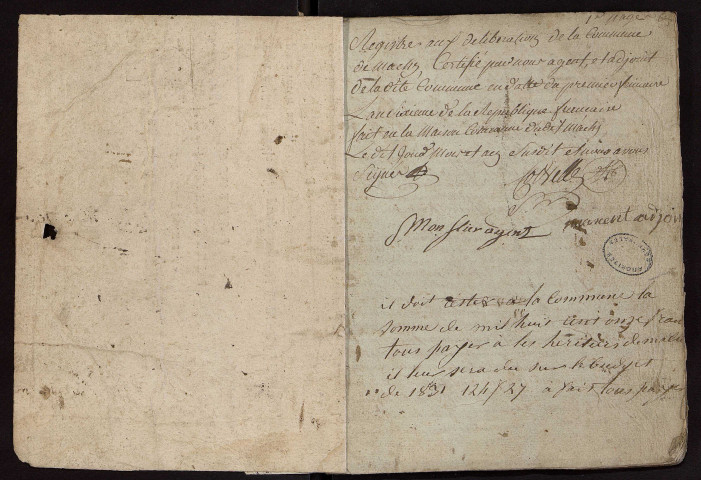 1re page
Registre aux deliberations de la Commune
de Machy Certifié par nous agent, et adjoint
de la dite Commune en datte du premier frimaire
L'an sixieme de la Republique francaise
fait en la Maison Commune dudit Machy
Le dit jour Mois et an Susdit et nous avons
Signer
Monflier agent
adjoint
il doit rester a la Commune la
somme de mil huit cent onze fran
tous payer à les héritiers
il leur sera du sur le budjet
de 1831 124f 27 à fait tous payer